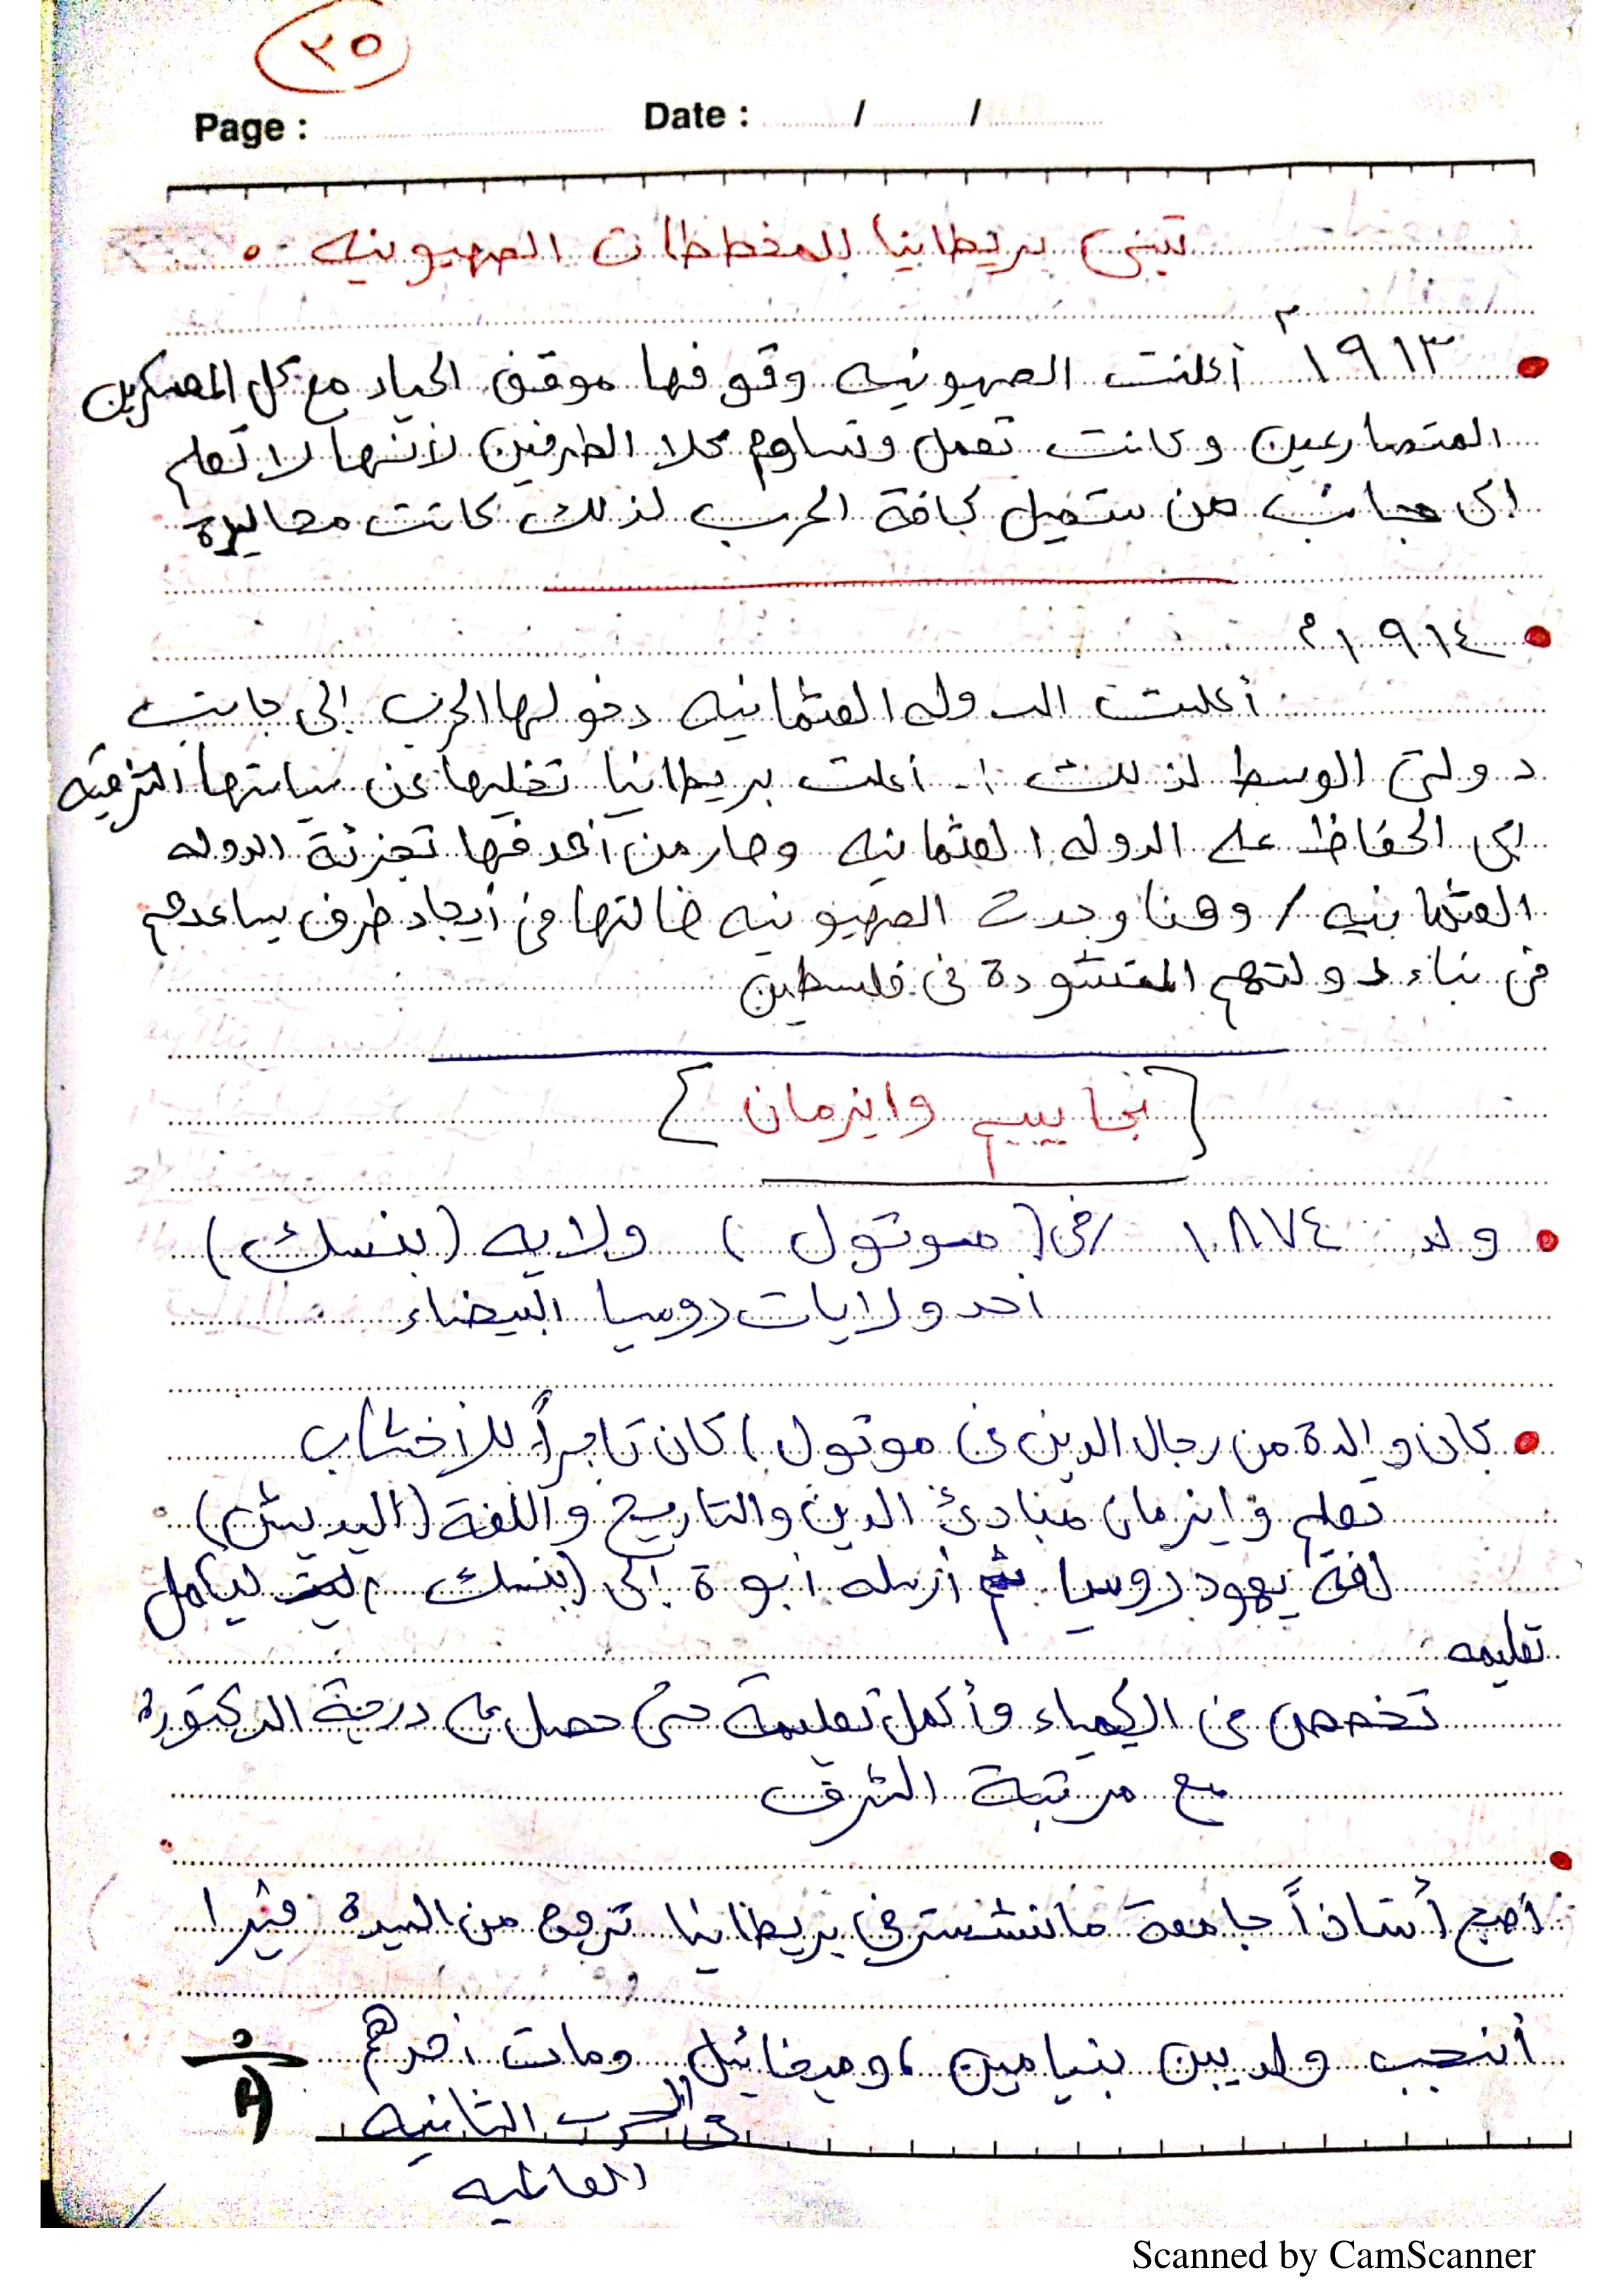 ٢٥
Page : Date : / /
تبنى بريطانيا للمخططات الصهيونيه
١٩١٣م أعلنت الصهيونيه وقوفها موقف الحياد مع كل المعسكرين
المتصارعين وكانت تعمل وتساوم كلا الطرفين لأنها لا تعلم
الى جانب من ستميل كافة الحرب لذلك كانت محايدة
١٩١٤م
أعلنت الدوله العثمانيه دخولها الحرب إلى جانب
دولتى الوسط لذلك ١- أعلنت بريطانيا تخليها عن سياستها الشرقيه
الى الحفاظ على الدوله العثمانيه وصار من أهدفها تجزئة الدوله
العثمانيه / وهنا وجدت الصهيونيه ضالتها فى أيجاد طرف يساعدهم
فى بناء دولتهم المنشودة فى فلسطين
[حاييم وايزمان]
ولد ١٨٧٤ / فى (موتول) ولايه (بنسك)
أحد ولايات روسيا البيضاء
كان والدة من رجال الدين فى موتول / كان تاجراً للأخشاب
تعلم وايزمان مبادئ الدين والتاريخ واللغة (اليديش)
لغة يهود روسيا ثم أرسله أبوة إلى (بنسك ليكمل
تعليمه
تخصص فى الكيمياء وأكمل تعليمة حتى حصل على درجة الدكتورة
مع مرتبة الشرف
أصبح أستاذاً جامعة مانشستر فى بريطانيا تزوج من السيدة فيرا
أنجب ولديين بنيامين ، وميخائيل ومات أحدهم
فى الحرب الثانيه
العالميه
Scanned by CamScanner